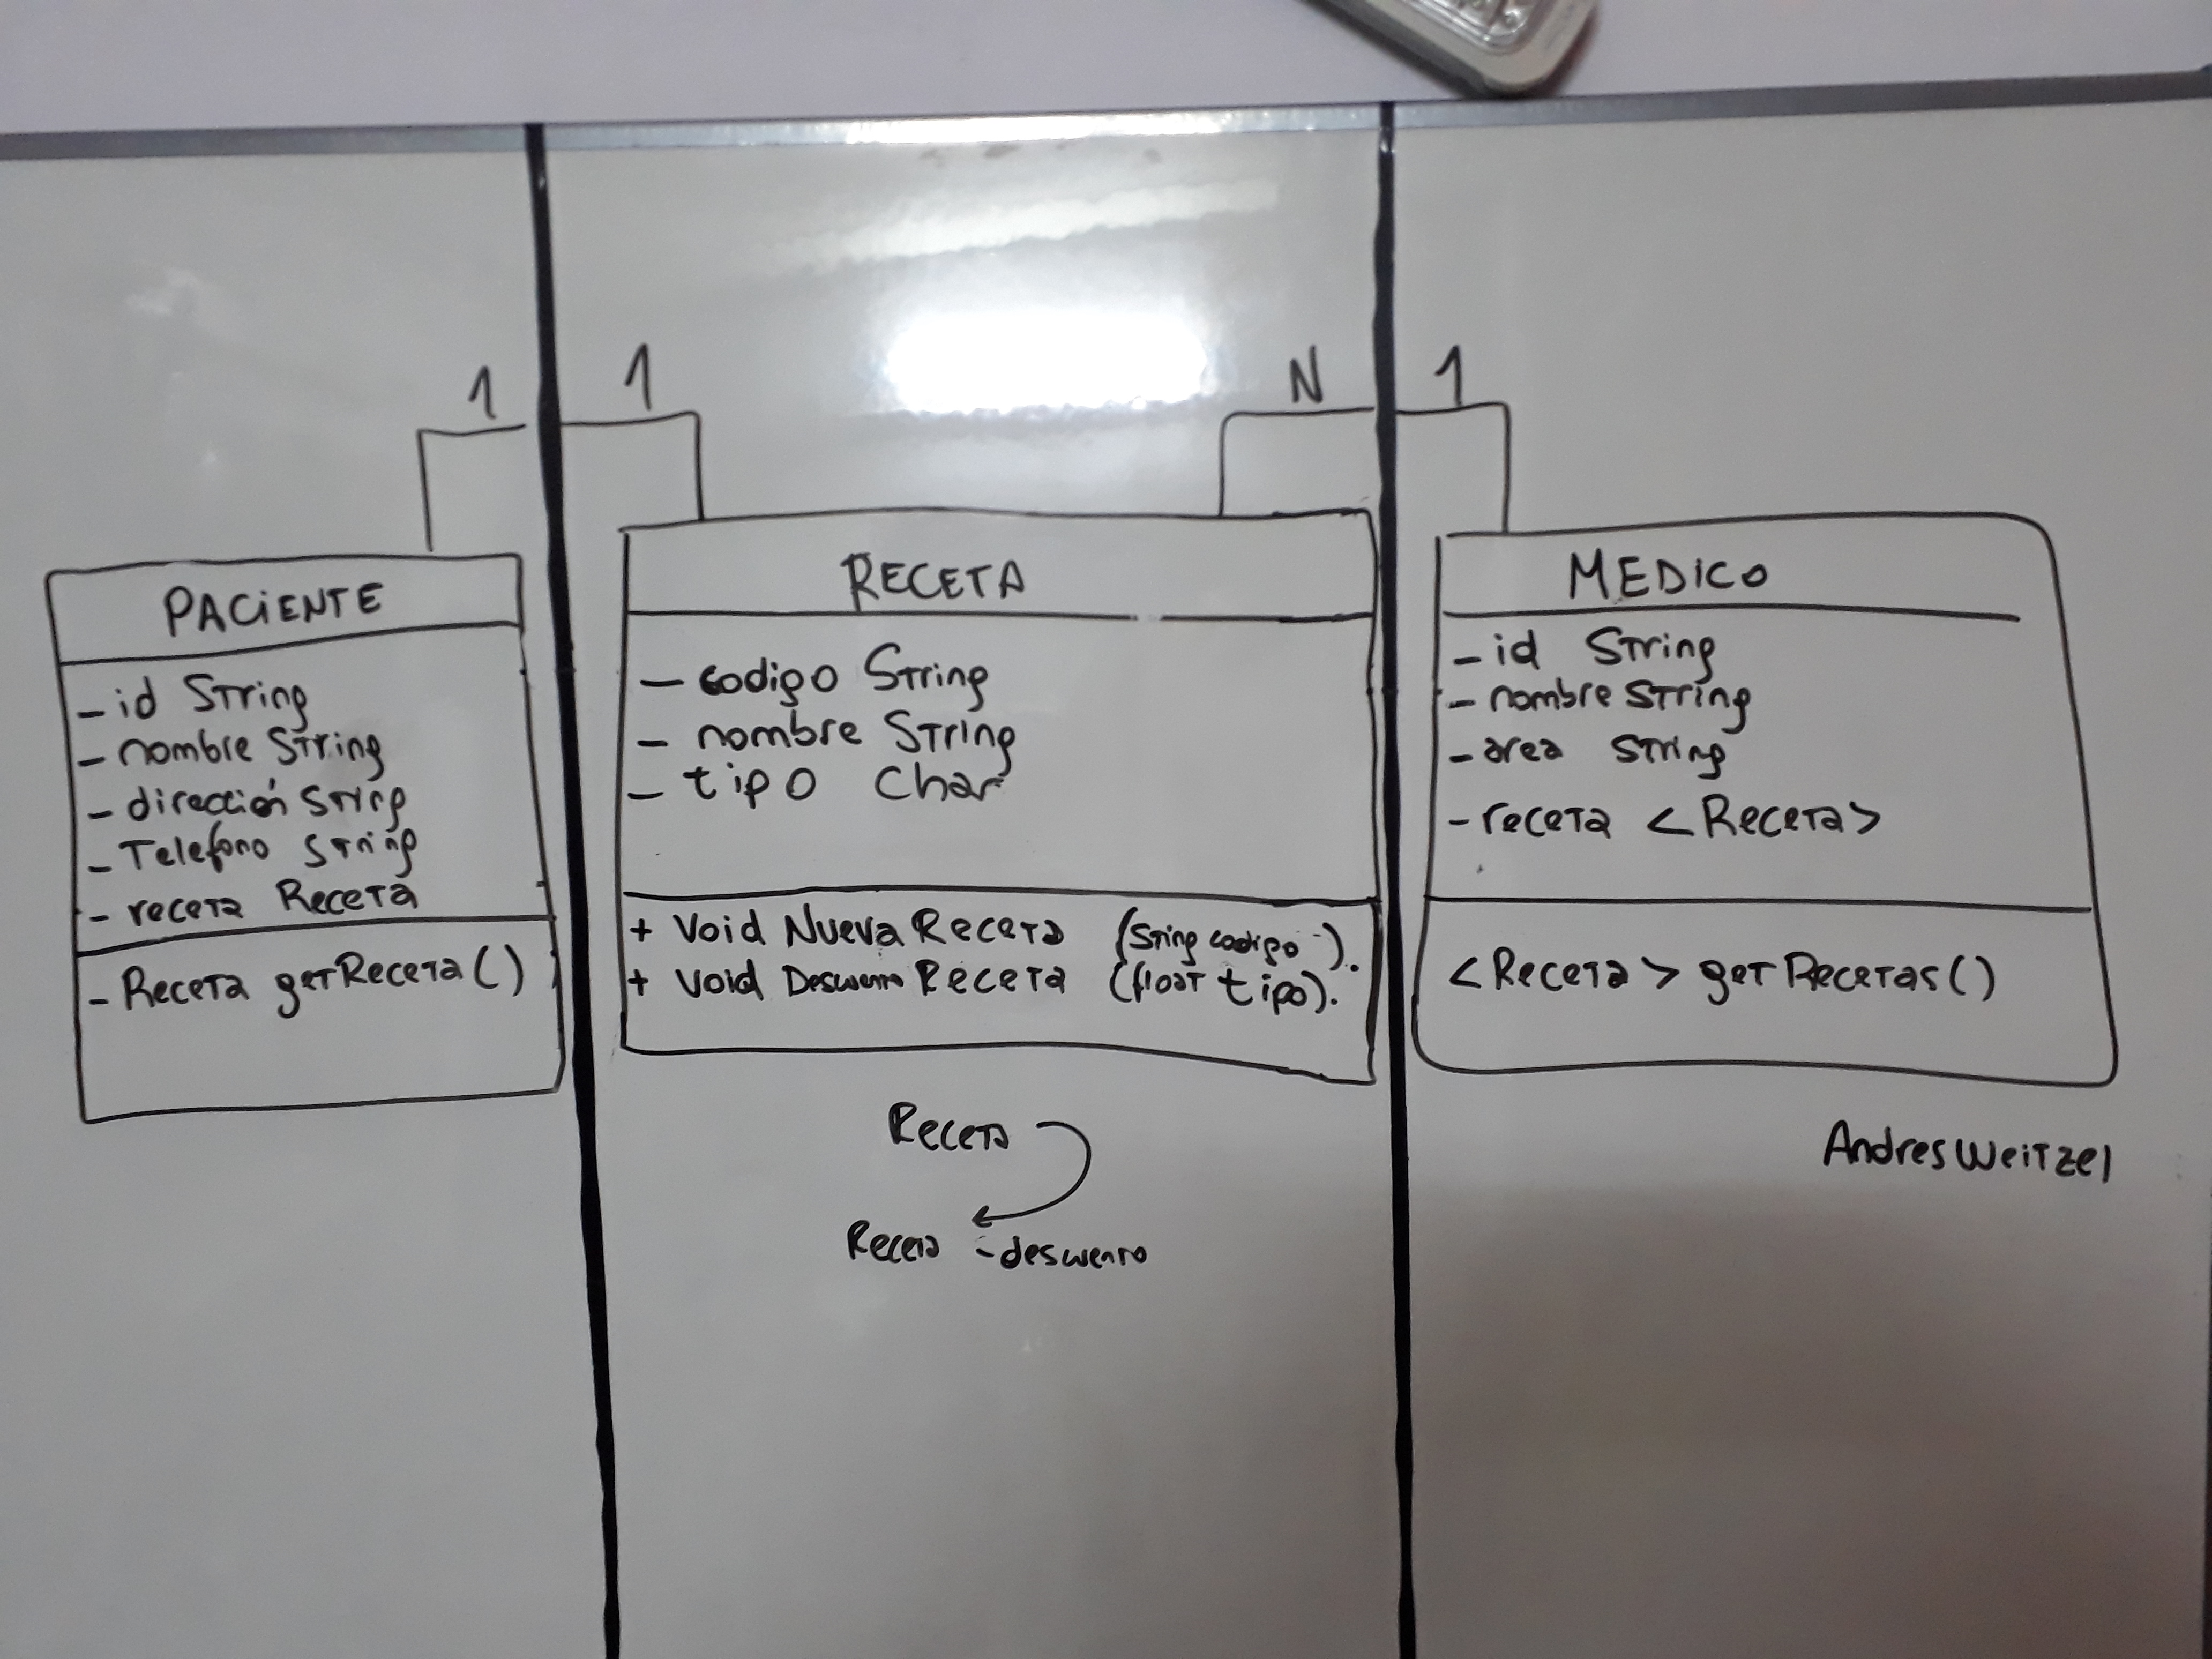 1 1 N 1
PACIENTE
- id String
- nombre String
- dirección String
- Telefono String
- receta Receta
- Receta getReceta()
RECETA
- codigo String
- nombre String
- tipo Char
+ Void NuevaReceta (String codigo).
+ Void Descuento Receta (float tipo).
Receta
Receta - descuento
MEDICO
- id String
- nombre String
- area String
- receta <Receta>
<Receta> getRecetas()
AndresWeitzel